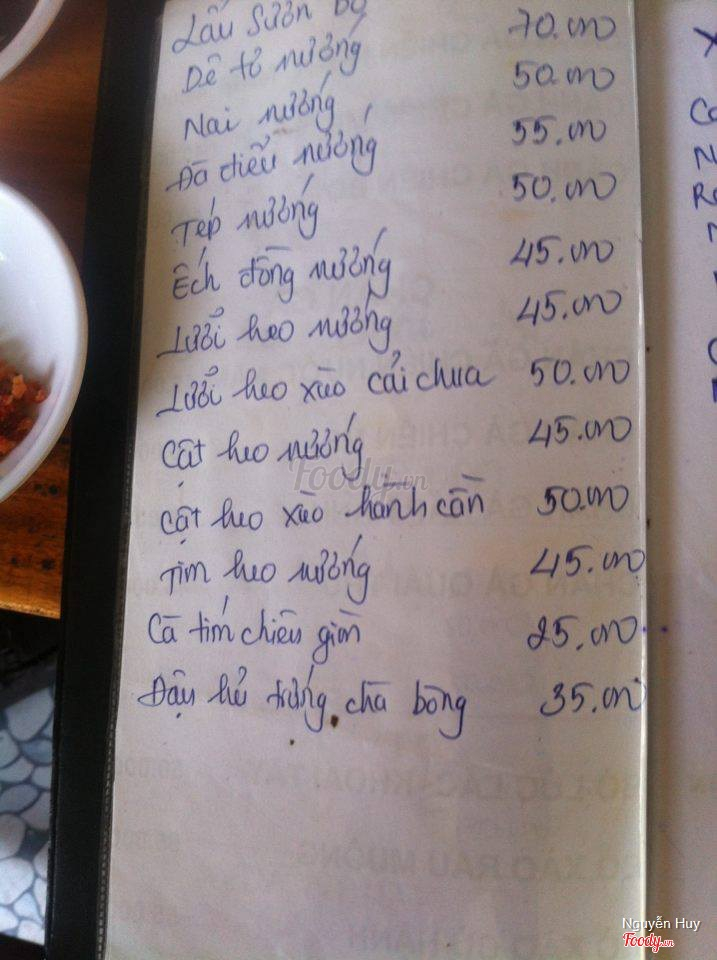 Lẩu Sườn Bò 70.000
Dê tơ nướng 50.000
Nai nướng 55.000
Đà điểu nướng 50.000
Tép nướng 45.000
Ếch đồng nướng 45.000
Lưỡi heo nướng 50.000
Lưỡi heo xào cải chua 45.000
Cật heo nướng 50.000
Cật heo xào hành cần 45.000
Tim heo nướng 25.000
Cà tím chiên giòn 35.000
Đậu hủ trứng chà bông
Foody.vn
Nguyễn Huy
Foody.vn